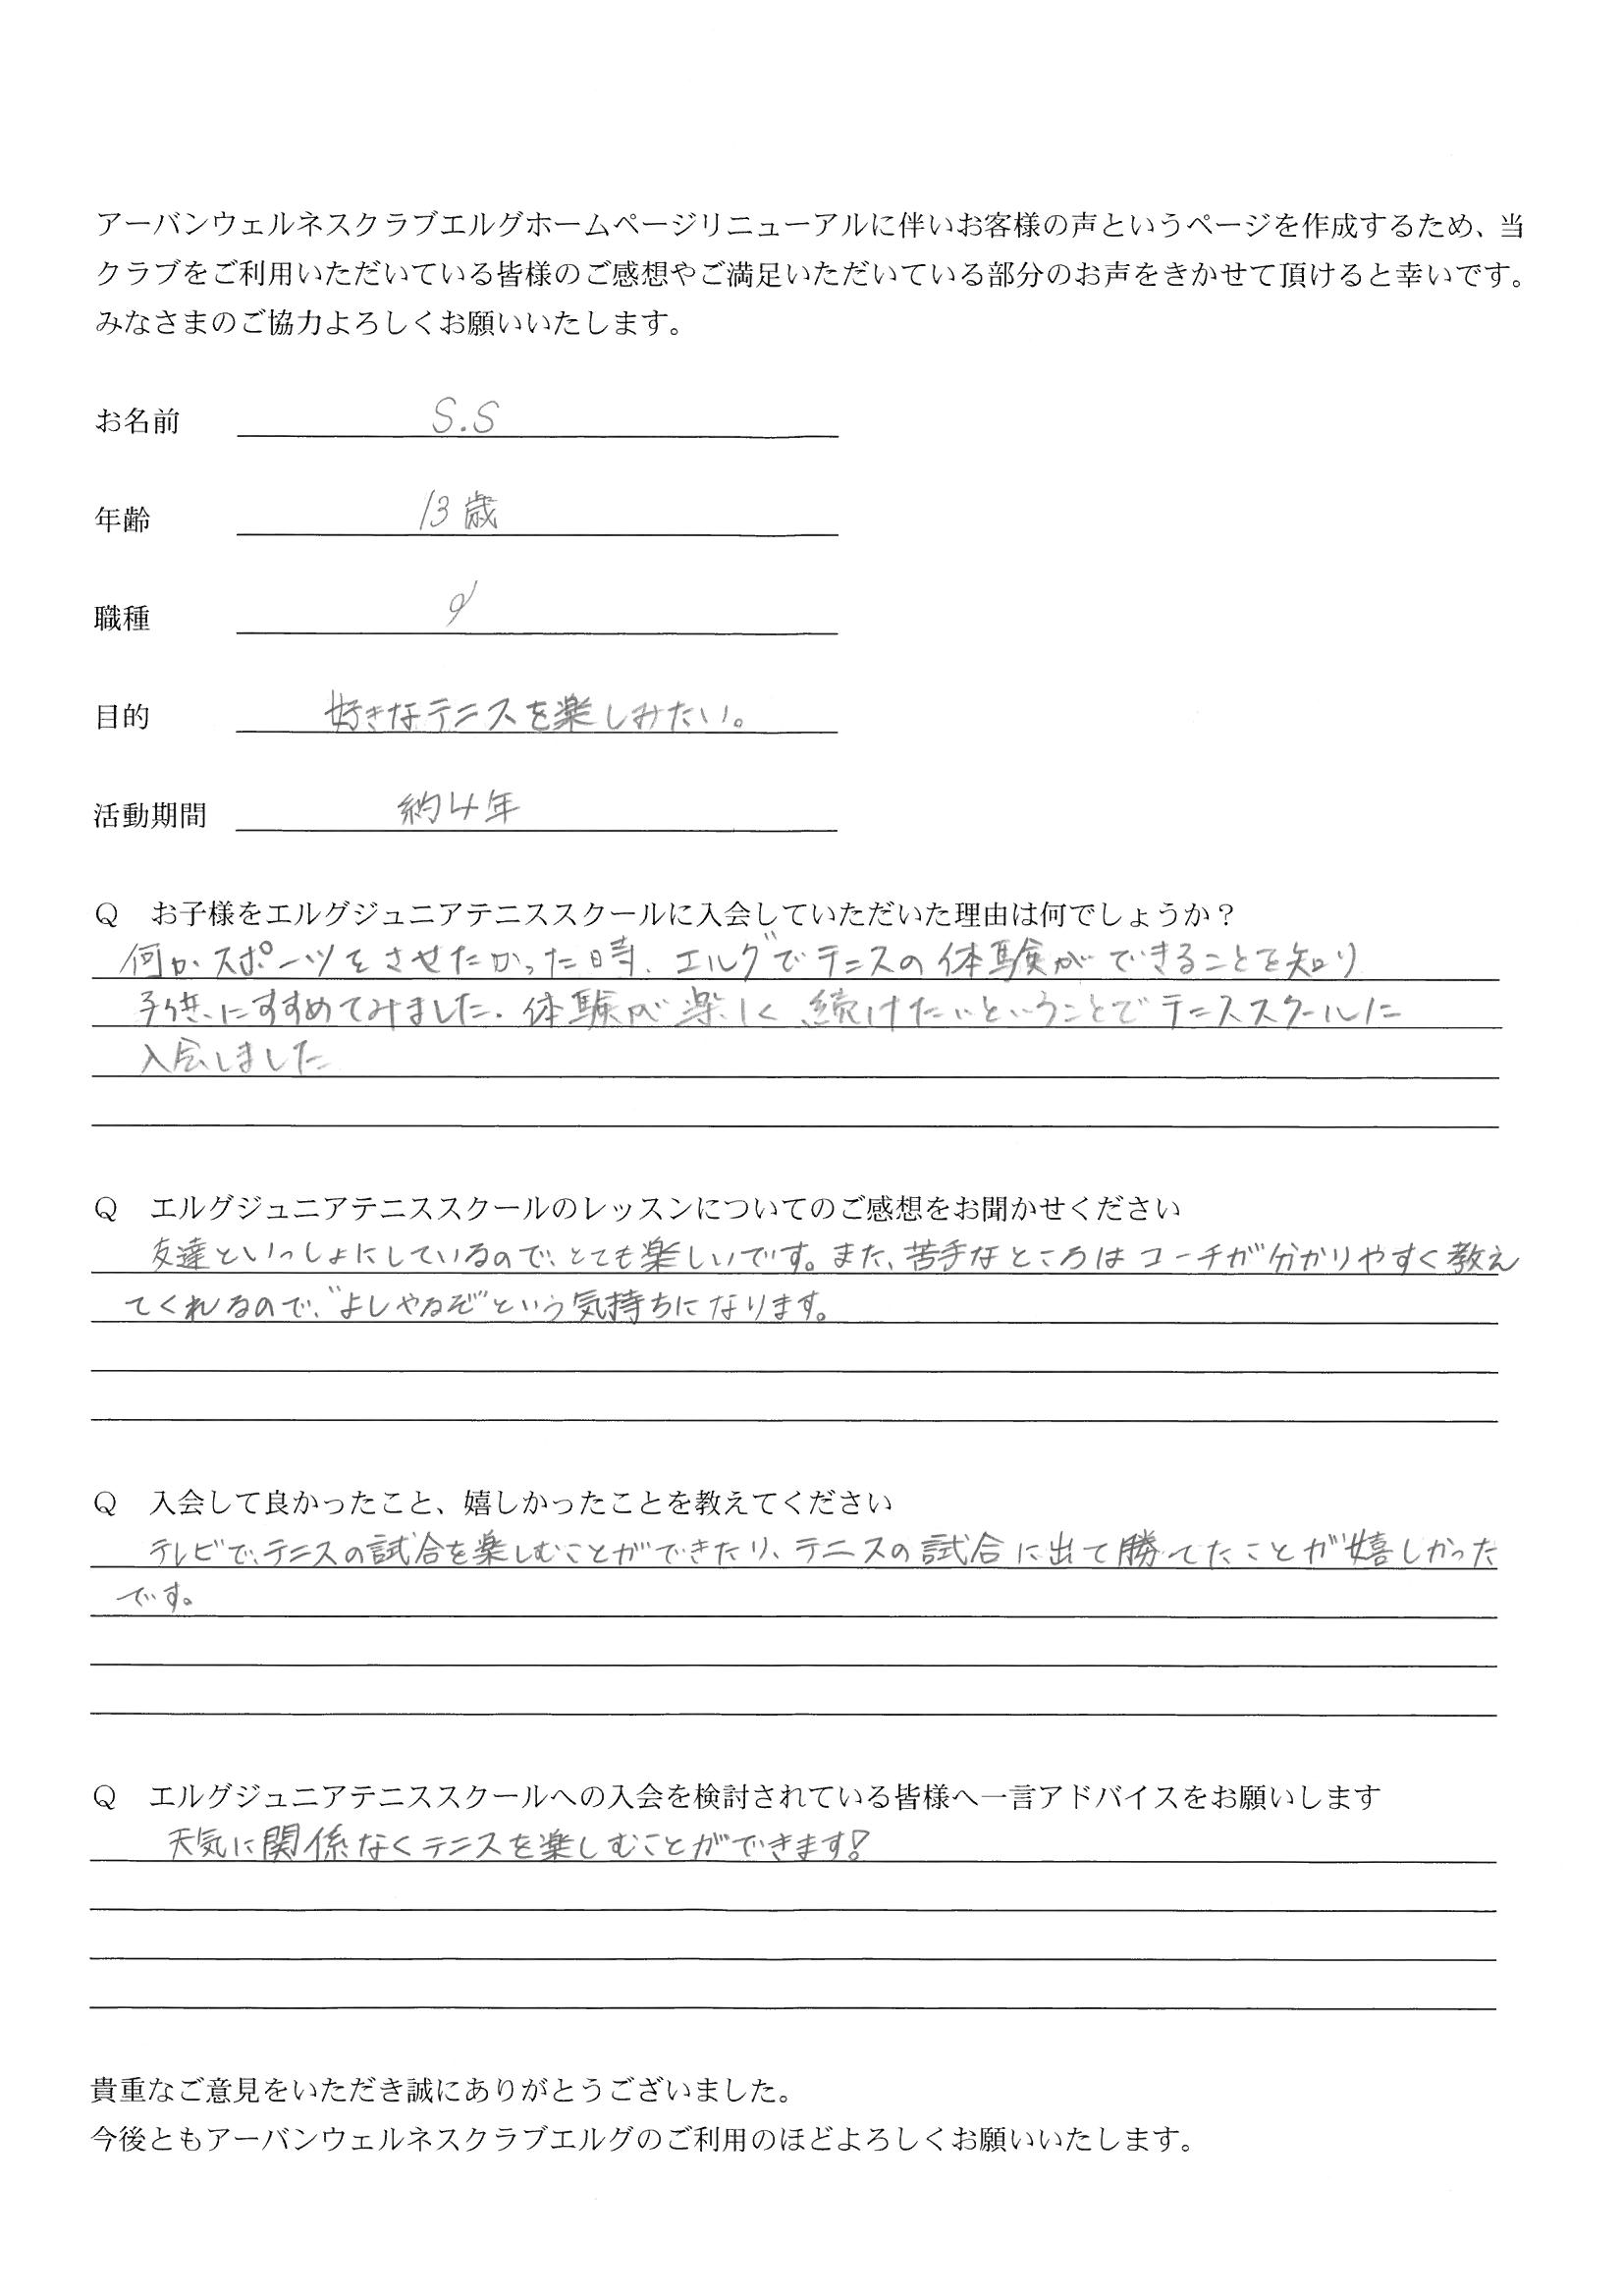 アーバンウェルネスクラブエルグホームページリニューアルに伴いお客様の声というページを作成するため、当
クラブをご利用いただいている皆様のご感想やご満足いただいている部分のお声をきかせて頂けると幸いです。
みなさまのご協力よろしくお願いいたします。
お名前 S.S
年齢 13歳
職種
目的 好きなテニスを楽しみたい。
活動期間 約4年
Q お子様をエルグジュニアテニススクールに入会していただいた理由は何でしょうか？
何かスポーツをさせたかった時、エルグでテニスの体験ができることを知り
子供にすすめてみました。体験が楽しく続けたいということでテニススクールに
入会しました
Q エルグジュニアテニススクールのレッスンについてのご感想をお聞かせください
友達といっしょにしているので、とても楽しいです。また、苦手なところはコーチが分かりやすく教え
てくれるので、"よしやるぞ"という気持ちになります。
Q 入会して良かったこと、嬉しかったことを教えてください
テレビで、テニスの試合を楽しむことができたり、テニスの試合に出て勝てたことが嬉しかった
です。
Q エルグジュニアテニススクールへの入会を検討されている皆様へ一言アドバイスをお願いします
天気に関係なくテニスを楽しむことができます!
貴重なご意見をいただき誠にありがとうございました。
今後ともアーバンウェルネスクラブエルグのご利用のほどよろしくお願いいたします。